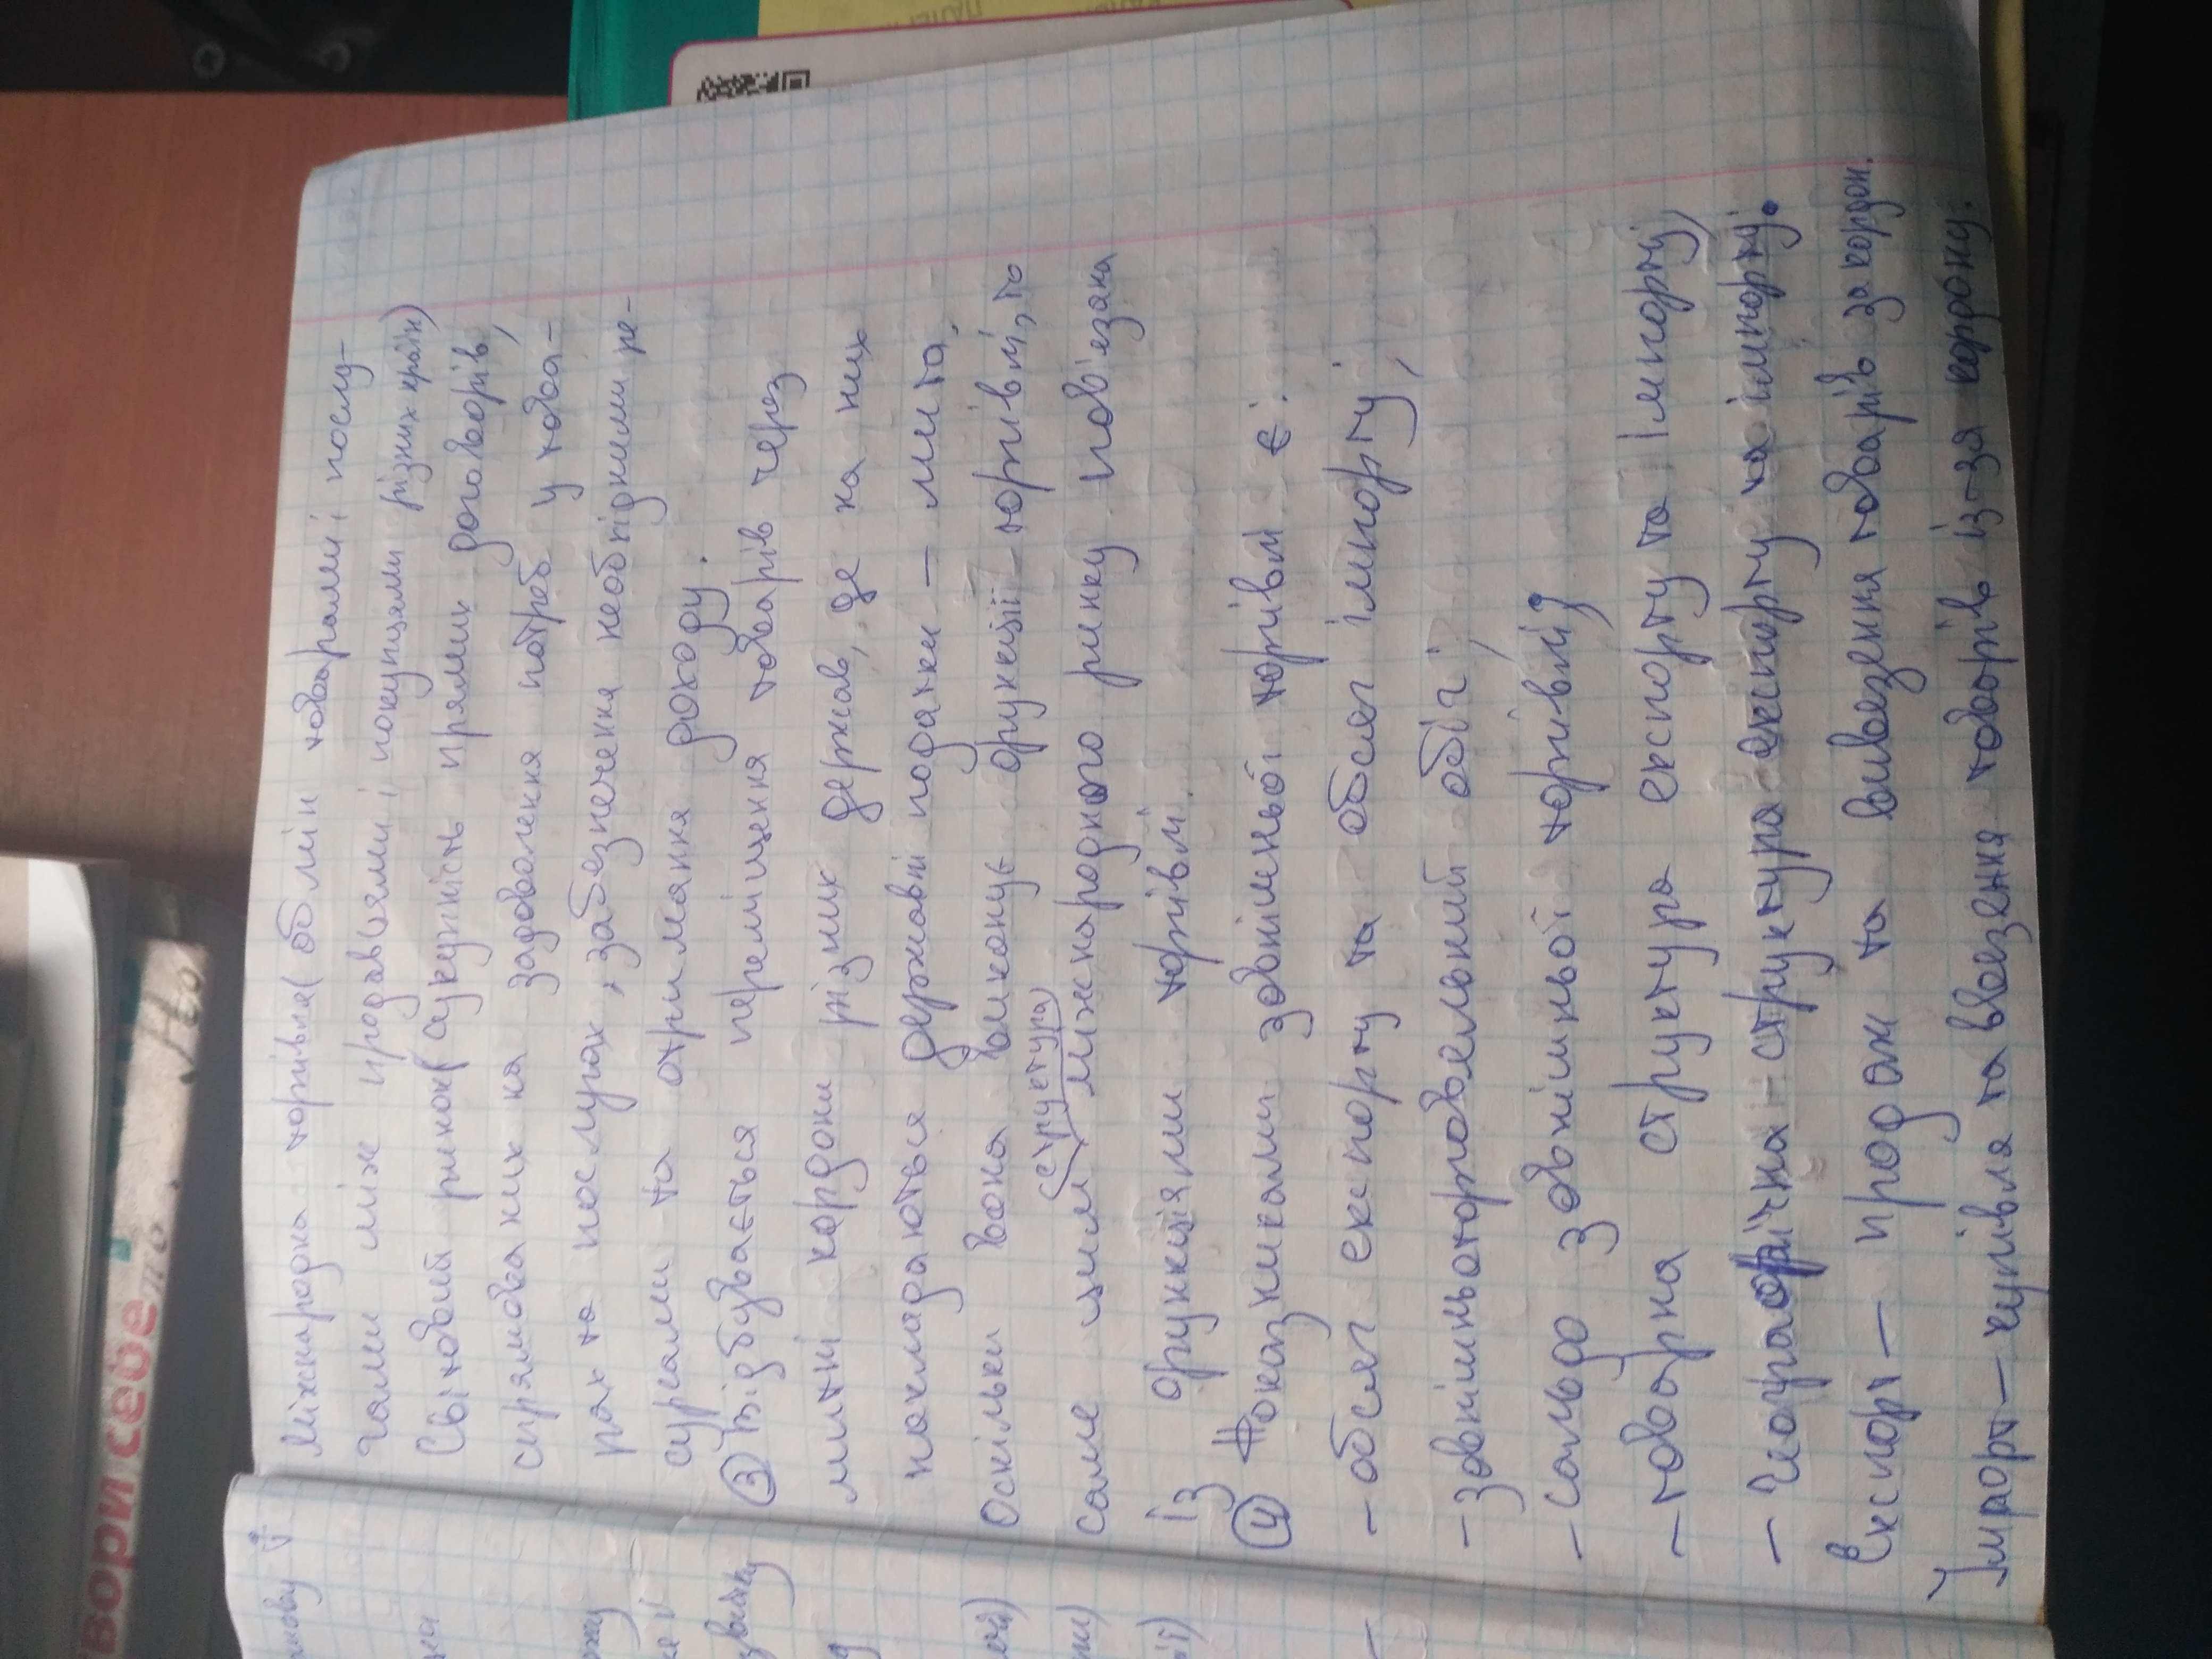 Міжнародна торгівля(обмін товарами і послу-
гами між продавцями і покупцями різних країн)
Світовий ринок(сукупність прямих договорів,
спрямованих на задоволення потреб у това-
рах та послугах, забезпечення необхідними ре-
сурсами та отримання доходу.
③ Відбувається переміщення товарів через
митні кордони різних держав, де на них
накладаються державні податки – мита.
Оскільки вона виконує функції торгівлі, то
(структура)
саме цим міжнародного ринку пов'язана
із функціями торгівлі.
④ Показниками зовнішньої торгівлі є:
– обсяг експорту та обсяг імпорту;
– зовнішньоторговельний обіг;
– сальдо зовнішньої торгівлі;
– товарна структура експорту та імпорту;
– географічна структура експорту на імпорту.
Експорт – продаж та вивезення товарів за кордон.
Імпорт – купівля та ввезення товарів із-за кордону.
твори себе